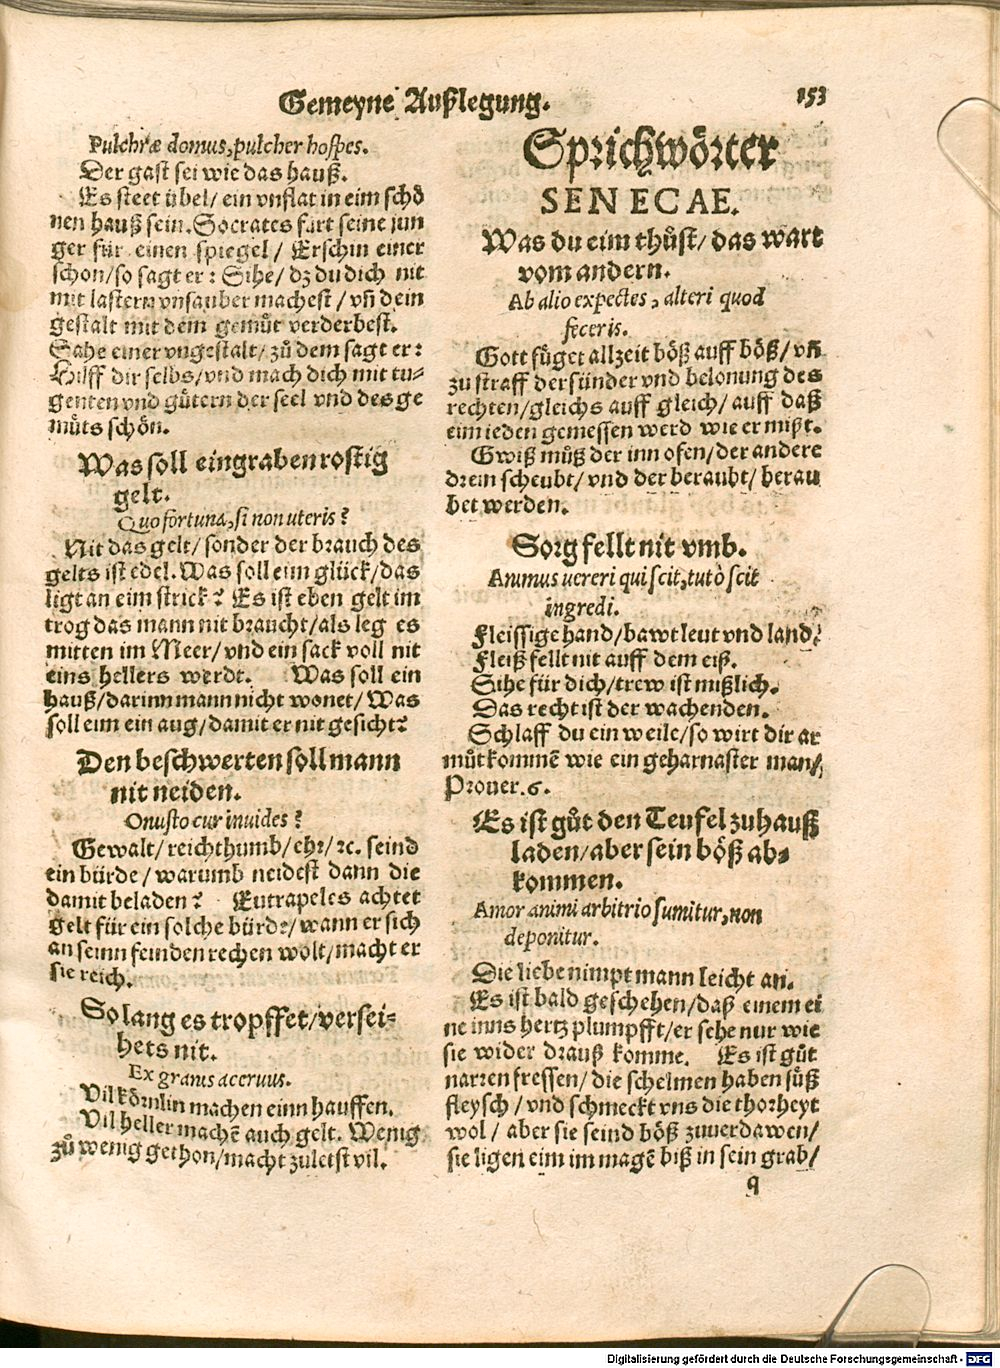 Gemeyne Außlegung.
153
Pulchræ domus, pulcher hospes.
Der gast sei wie das hauß.
Es steet übel/ ein vnflat in eim schö
nen hauß sein. Socrates fürt seine jun
ger für einen spiegel/ Erschin einer
schon/ so sagt er: Sihe/ dz du dich nit
mit lastern vnsauber machest/ vñ dein
gestalt mit dem gemüt verderbest.
Sahe einer vngestalt/ zů dem sagt er:
Hilff dir selbs/ vnd mach dich mit tu-
genten vnd gütern der seel vnd des ge
müts schön.
Was soll eingraben rostig
gelt.
Quo fortuna, si non uteris?
Nit das gelt/ sonder der brauch des
gelts ist edel. Was soll eim glück/ das
ligt an eim strick? Es ist eben gelt im
trog das mann nit braucht/ als leg es
mitten im Meer/ vnd ein sack voll nit
eins hellers werdt. Was soll ein
hauß/ darinn mann nicht wonet/ Was
soll eim ein aug/ damit er nit gesicht?
Den beschwerten soll mann
nit neiden.
Onusto cur inuides?
Gewalt/ reichthumb/ ehr/ ꝛc. seind
ein bürde/ warumb neidest dann die
damit beladen? Eutrapeles achtet
gelt für ein solche bürde/ wann er sich
an seinn feinden rechen wolt/ macht er
sie reich.
So lang es tropffet/ versei-
hets nit.
Ex granis aceruus.
Vil körnlin machen einn hauffen.
Vil heller machē auch gelt. Wenig
zů wenig gethon/ macht zuletst vil.
Sprichwörter
SENECAE.
Was du eim thůst/ das wart
vom andern.
Ab alio expectes, alteri quod
feceris.
Gott füget allzeit böß auff böß/ vñ
zu straff der sünder vnd belonung des
rechten/ gleichs auff gleich/ auff daß
eim ieden gemessen werd wie er mißt.
Gwiß můß der inn ofen/ der andere
drein scheubt/ vnd der beraubt/ berau
bet werden.
Sorg fellt nit vmb.
Animus uereri qui scit, tutò scit
ingredi.
Fleissige hand/ bawt leut vnd land.
Fleiß fellt nit auff dem eiß.
Sihe für dich/ trew ist mißlich.
Das recht ist der wachenden.
Schlaff du ein weile/ so wirt dir ar
můt kommē wie ein geharnaster man/
Prouer. 6.
Es ist gůt den Teufel zu hauß
laden/ aber sein böß ab-
kommen.
Amor animi arbitrio sumitur, non
deponitur.
Die liebe nimpt mann leicht an.
Es ist bald geschehen/ daß einem ei
ne inns hertz plumpfft/ er sehe nur wie
sie wider drauß komme. Es ist gůt
narren fressen/ die schelmen haben süß
fleysch/ vnd schmeckt vns die thorheyt
wol/ aber sie seind böß zuuerdawen/
sie ligen eim im magē biß in sein grab/
q
Digitalisierung gefördert durch die Deutsche Forschungsgemeinschaft - DFG